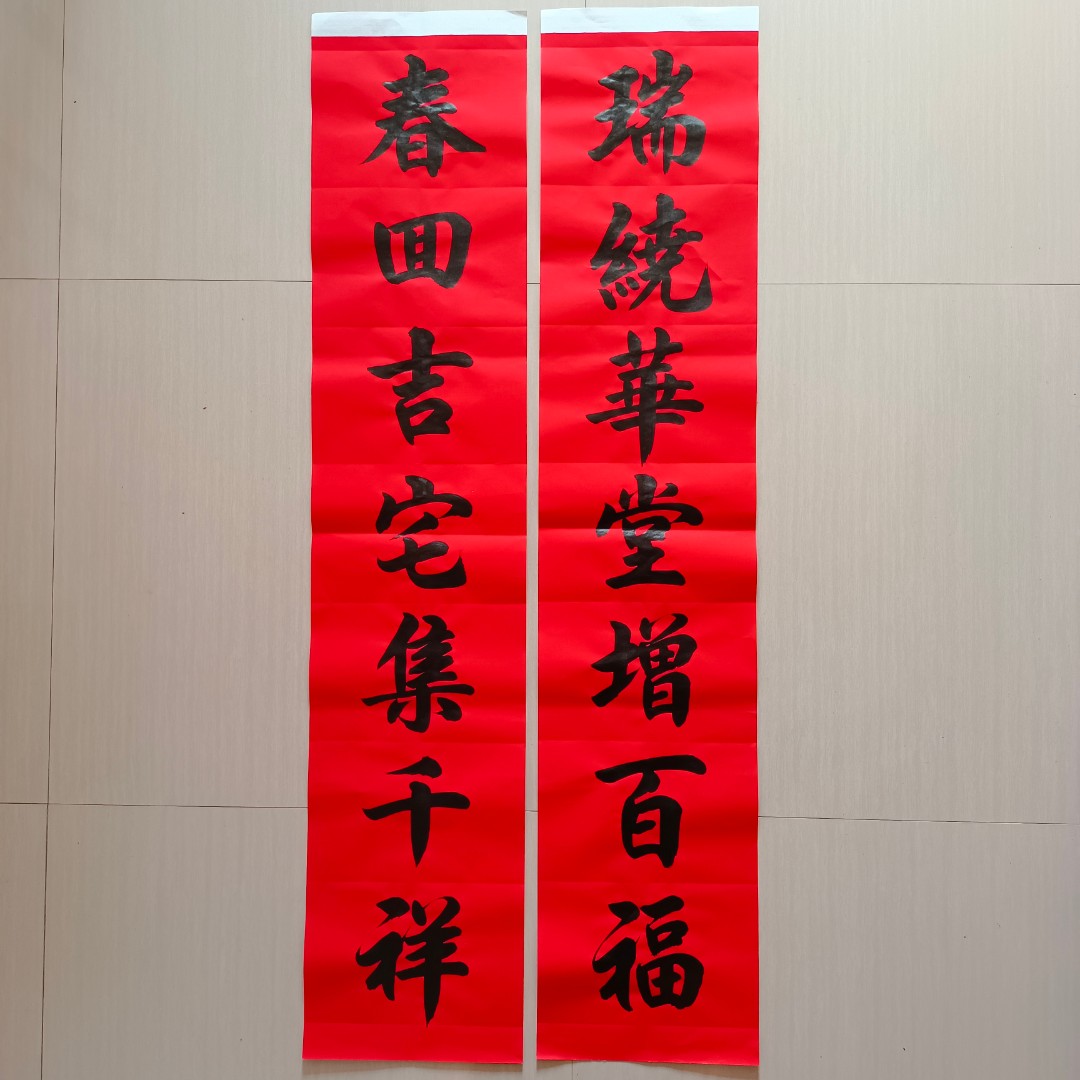 瑞繞華堂增百福
春囬吉宅集千祥